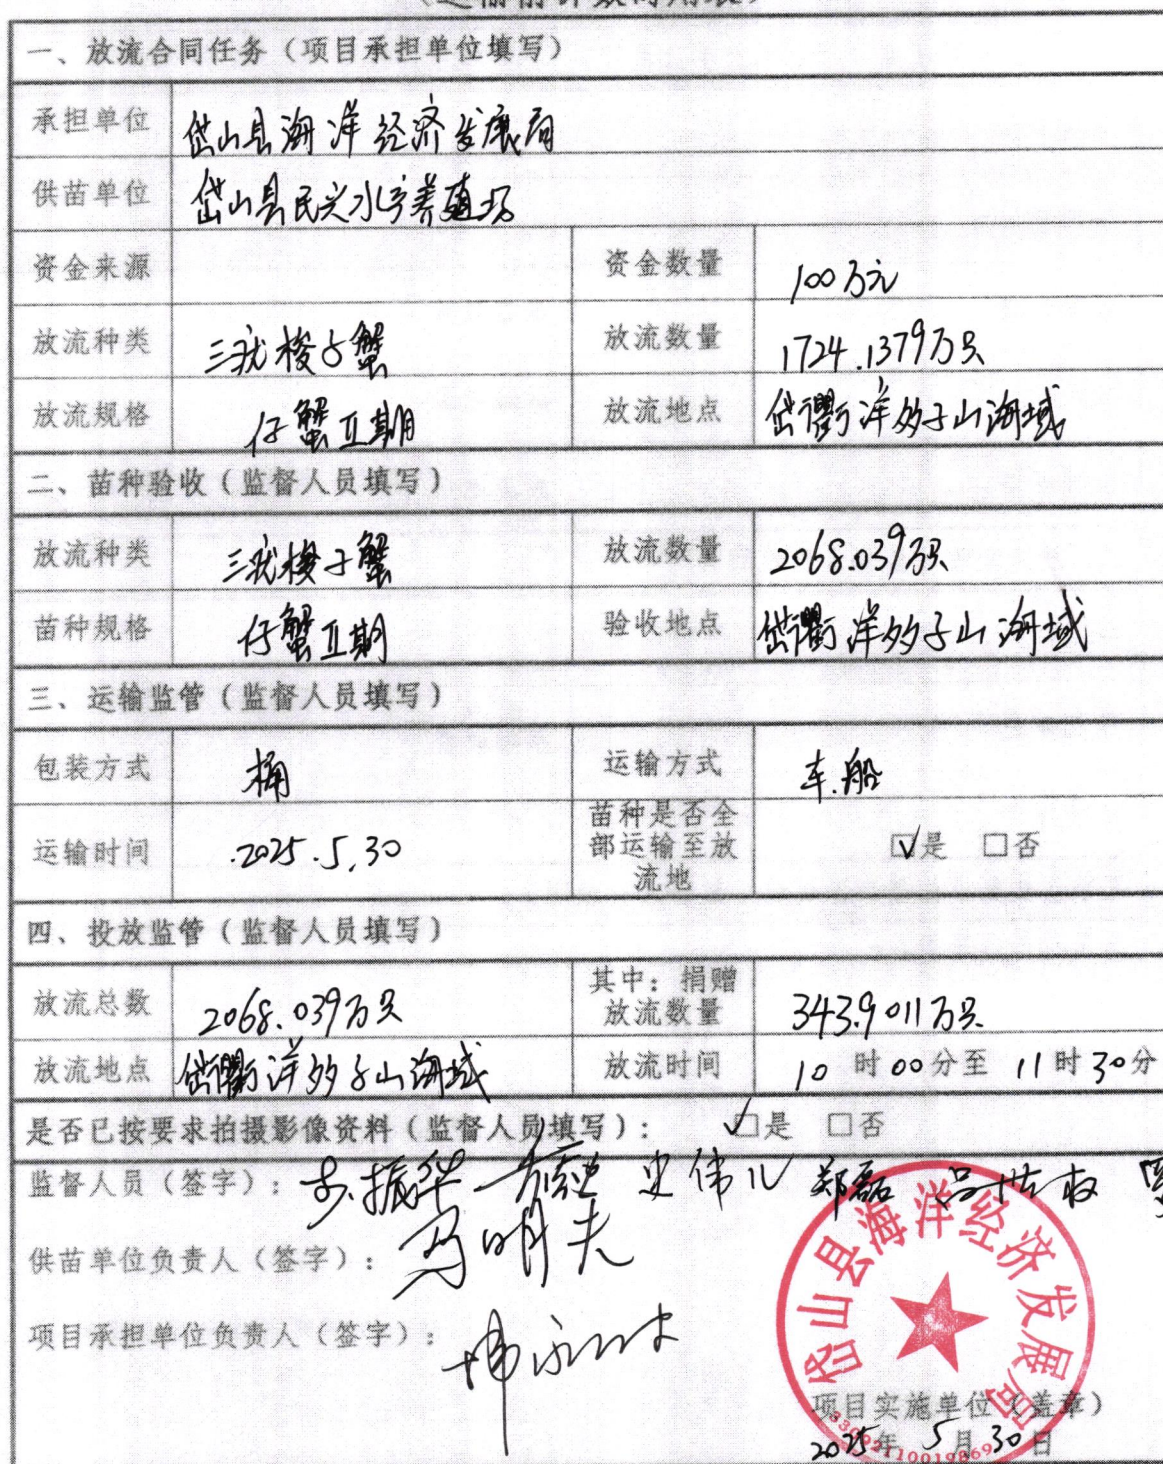 一、放流合同任务（项目承担单位填写）
承担单位 岱山县海洋经济发展局
供苗单位 岱山县民兴水产养殖场
资金来源 资金数量 100万元
放流种类 三疣梭子蟹 放流数量 1724.1379万只
放流规格 仔蟹Ⅱ期 放流地点 岱衢洋 子山海域
二、苗种验收（监督人员填写）
放流种类 三疣梭子蟹 放流数量 2068.039万只
苗种规格 仔蟹Ⅱ期 验收地点 岱衢洋 子山海域
三、运输监管（监督人员填写）
包装方式 桶 运输方式 车.船
运输时间 2025.5.30 苗种是否全部运输至放流地 ☑是 □否
四、投放监管（监督人员填写）
放流总数 2068.039万只 其中：捐赠放流数量 343.9011万只
放流地点 岱衢洋 子山海域 放流时间 10时00分至11时30分
是否已按要求拍摄影像资料（监督人员填写）： ☑是 □否
监督人员（签字）： 振华 史伟儿 郑磊
供苗单位负责人（签字）： 明夫
项目承担单位负责人（签字）：
岱山县海洋经济发展局
项目实施单位（盖章）
2025年5月30日